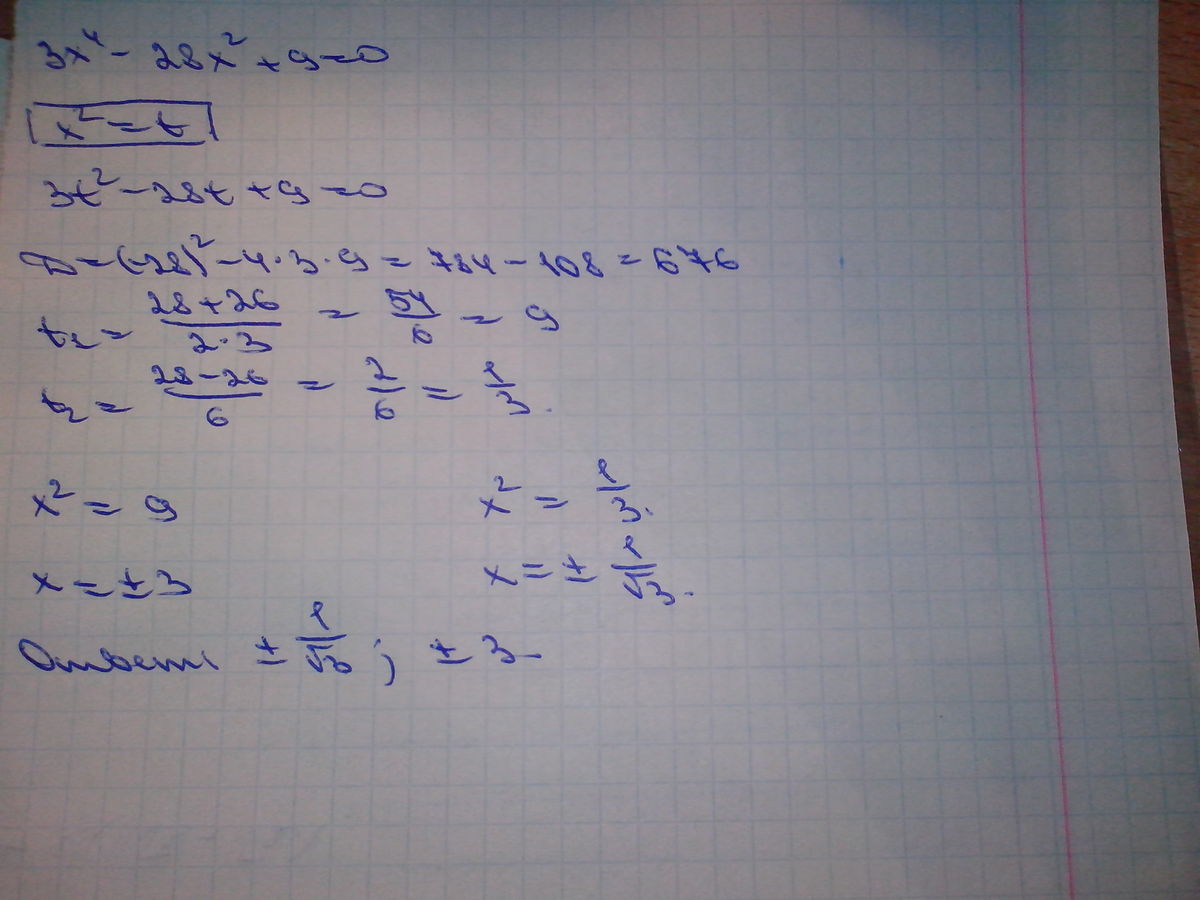 3x⁴ - 28x² + 9 = 0
x² = t
3t² - 28t + 9 = 0
D = (-28)² - 4·3·9 = 784 - 108 = 676
t₁ = (28+26)/(2·3) = 54/6 = 9
t₂ = (28-26)/6 = 2/6 = 1/3.
x² = 9 x² = 1/3.
x = ±3 x = ± 1/√3.
Ответ: ± 1/√3; ± 3.